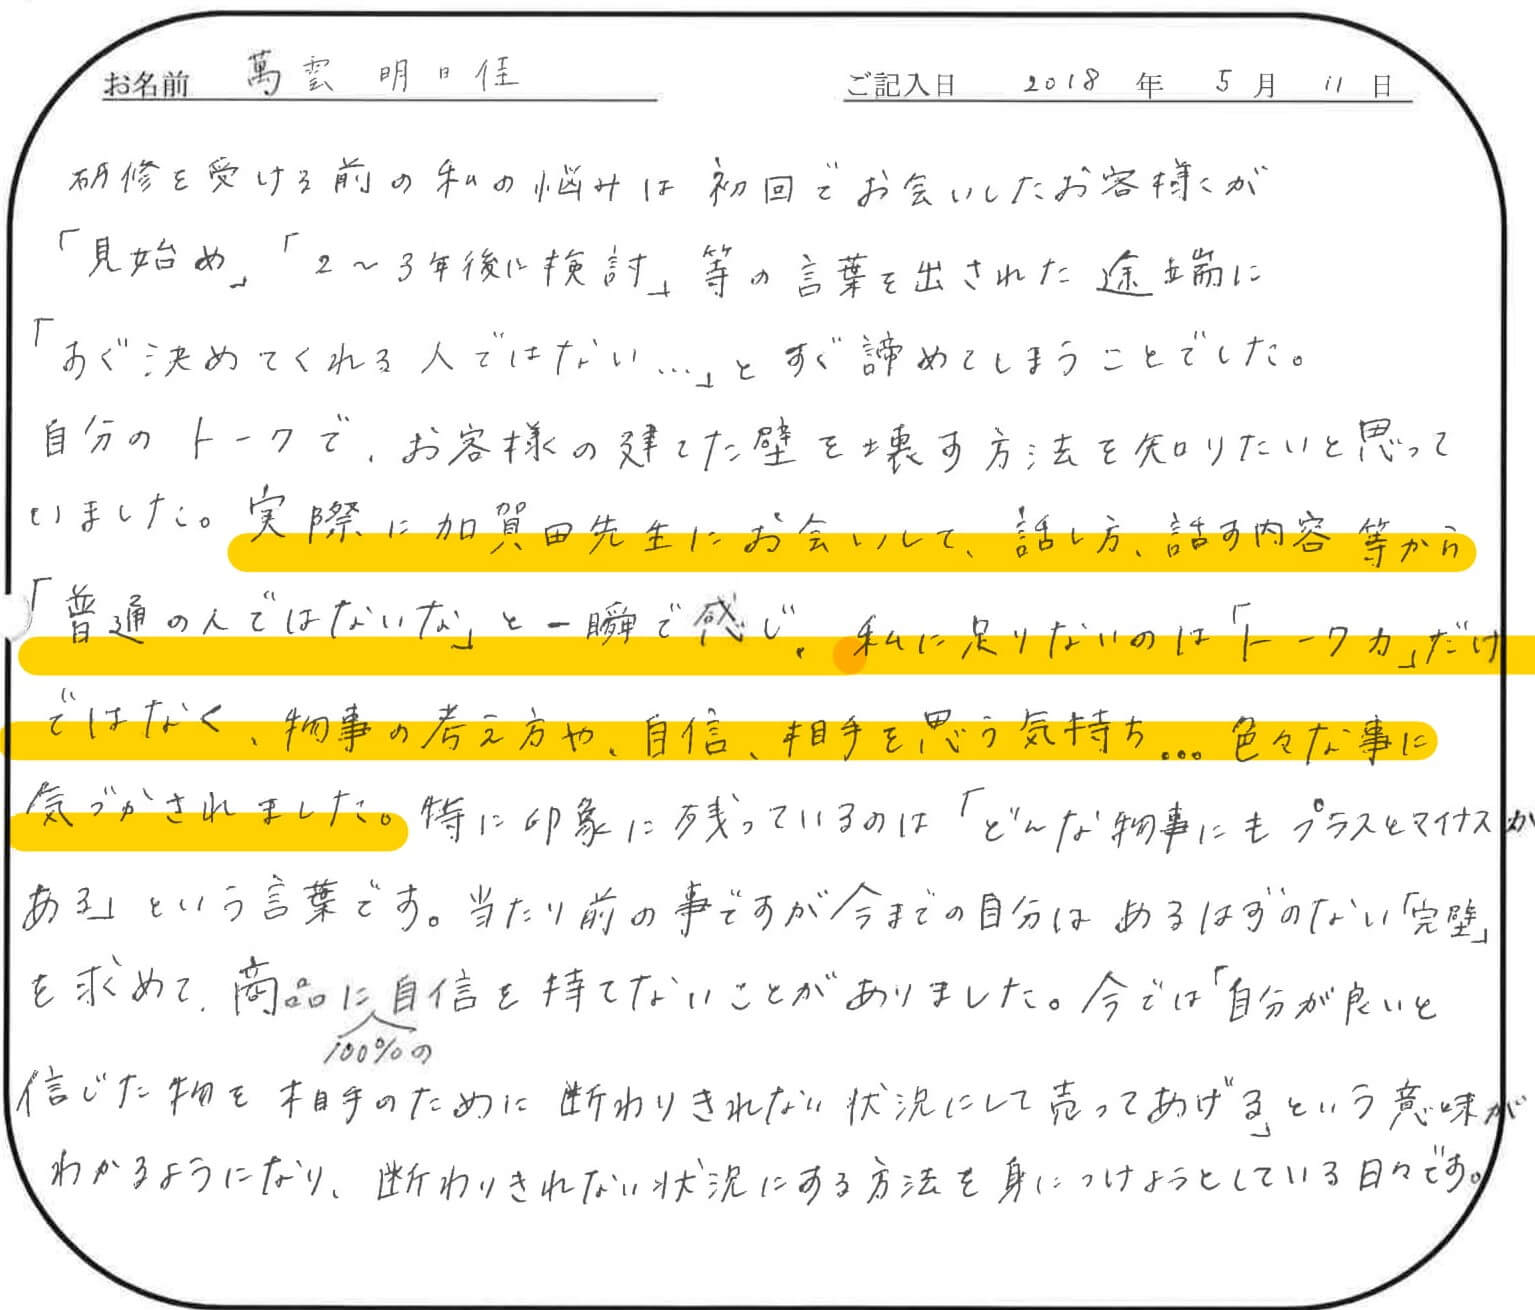 お名前 萬雲 明日佳 ご記入日 2018 年 5 月 11 日
研修を受ける前の私の悩みは初回でお会いしたお客様くが
「見始め」「2～3年後に検討」等の言葉を出された途端に
「すぐ決めてくれる人ではない…」とすぐ諦めてしまうことでした。
自分のトークで、お客様の建てた壁を壊す方法を知りたいと思って
いました。実際に加賀田先生にお会いして、話し方、話す内容等から
「普通の人ではないな」と一瞬で感じ、私に足りないのは「トーク力」だけ
ではなく、物事の考え方や、自信、相手を思う気持ち…色々な事に
気づかされました。特に印象に残っているのは「どんな物事にもプラスとマイナスが
ある」という言葉です。当たり前の事ですが今までの自分はあるはずのない「完壁」
を求めて、商品に自信を持てないことがありました。今では「自分が良いと
100%の
信じた物を相手のために断わりきれない状況にして売ってあげる」という意味が
わかるようになり、断わりきれない状況にする方法を身につけようとしている日々です。